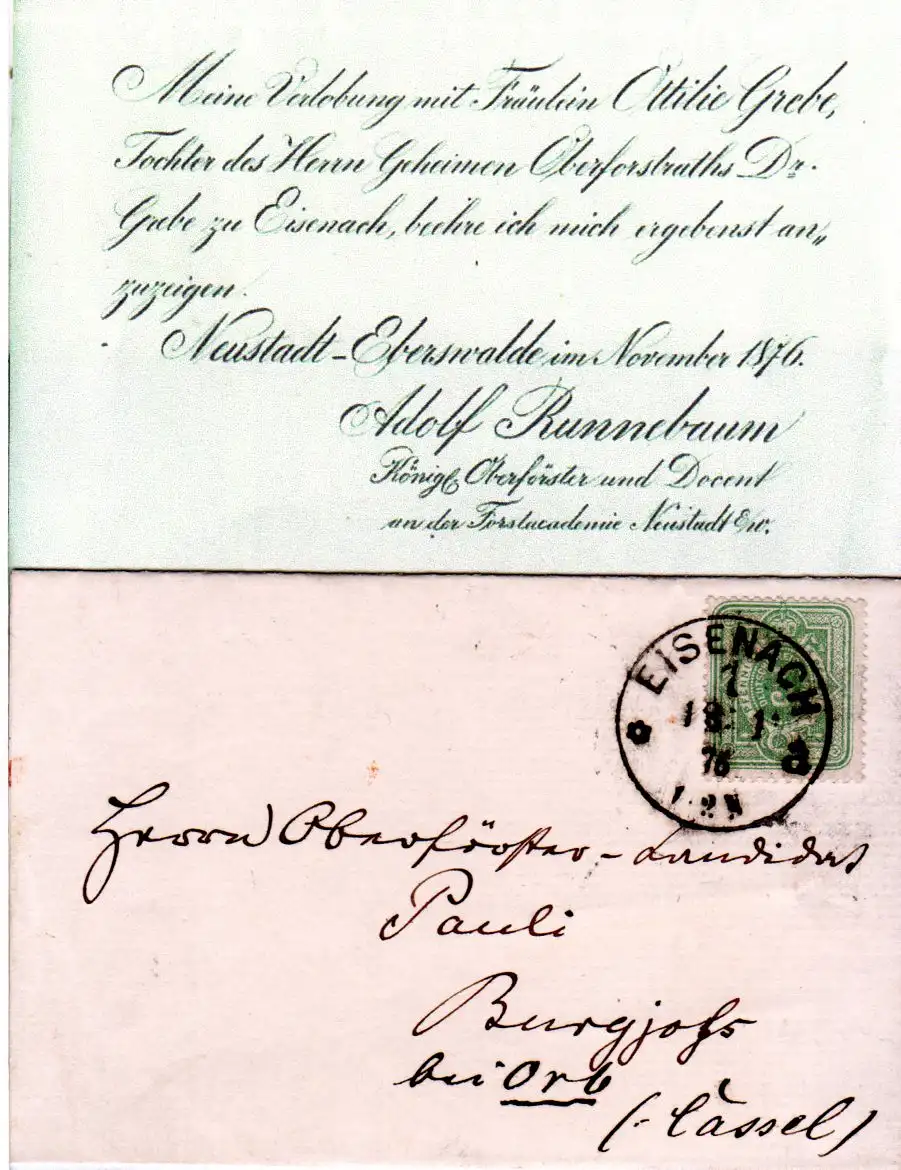 Meine Verlobung mit Fräulein Ottilie Grebe,
Tochter des Herrn Geheimen Oberforstraths Dr.
Grebe zu Eisenach, beehre ich mich ergebenst an„
zuzeigen.
Neustadt-Eberswalde im November 1876.
Adolf Runnebaum
Königl. Oberförster und Docent
an der Forstacademie Neustadt E/w.
EISENACH
a
76
Herrn Oberförster-Kandidat
Pauli
Burgjoss
bei Orb
(: Cassel)